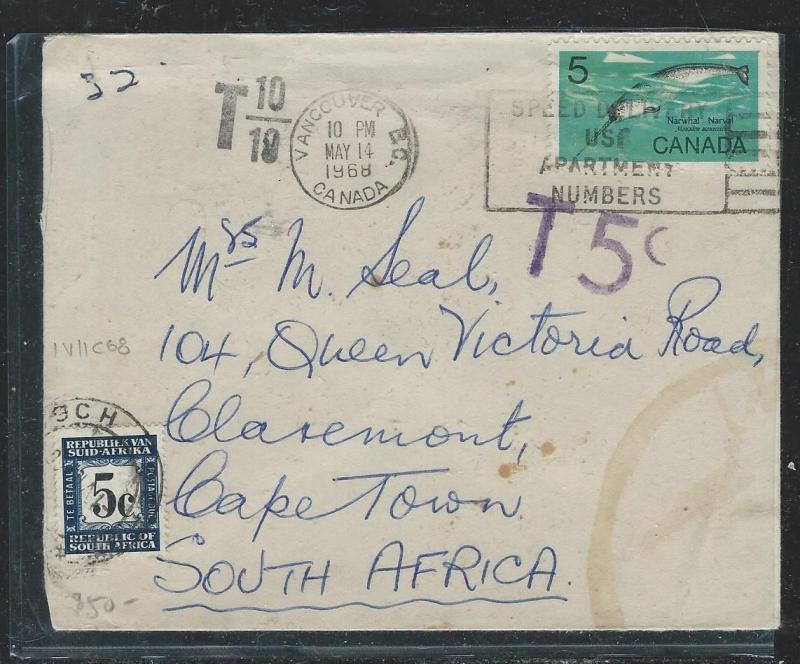 32
T 10/10
VANCOUVER B.C.
10 PM
MAY 14
1968
CANADA
5
Narwhal Narval
CANADA
SPEED DELIVERY
USE
APARTMENT
NUMBERS
T5c
Mrs M. Seal,
104, Queen Victoria Road,
Claremont,
Cape Town.
SOUTH AFRICA.
IV/IC68
OCH
REPUBLIEK VAN
SUID-AFRIKA
TE BETAAL
5c
POSTAGE DUE
REPUBLIC OF
SOUTH AFRICA
850-